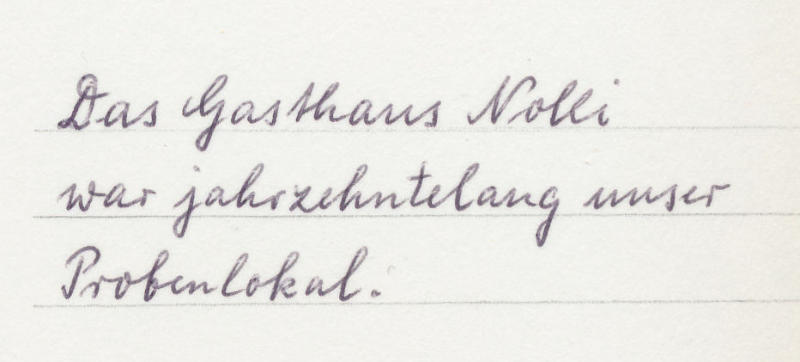 Das Gasthaus Nolli
war jahrzehntelang unser
Probenlokal.